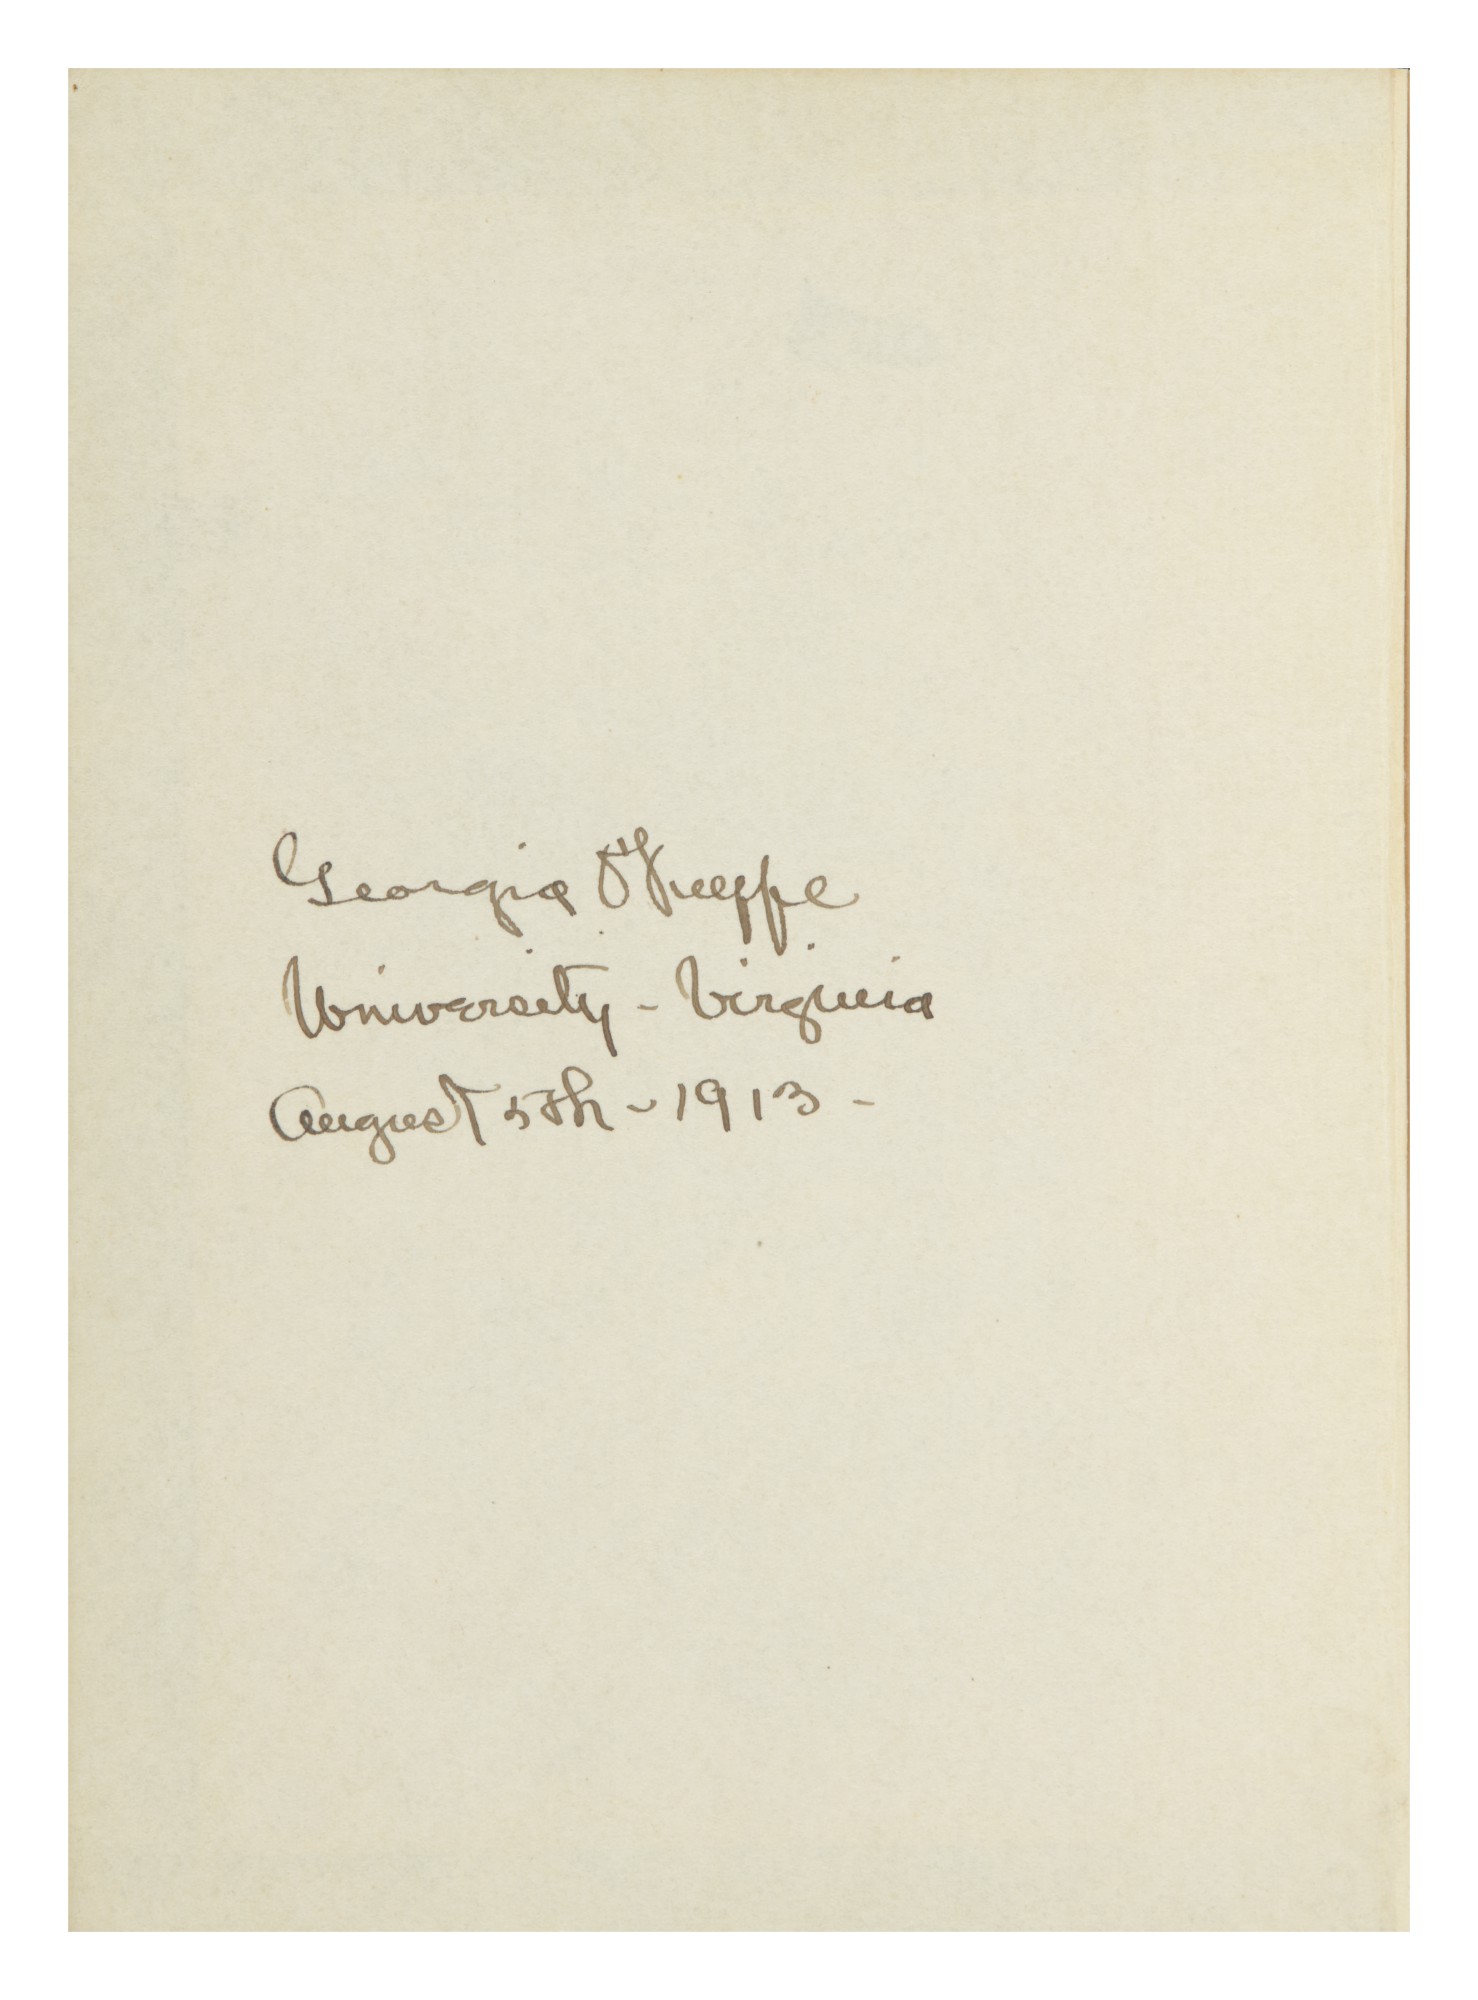 Georgia O'Keeffe
University - Virginia
August 5th - 1913 -